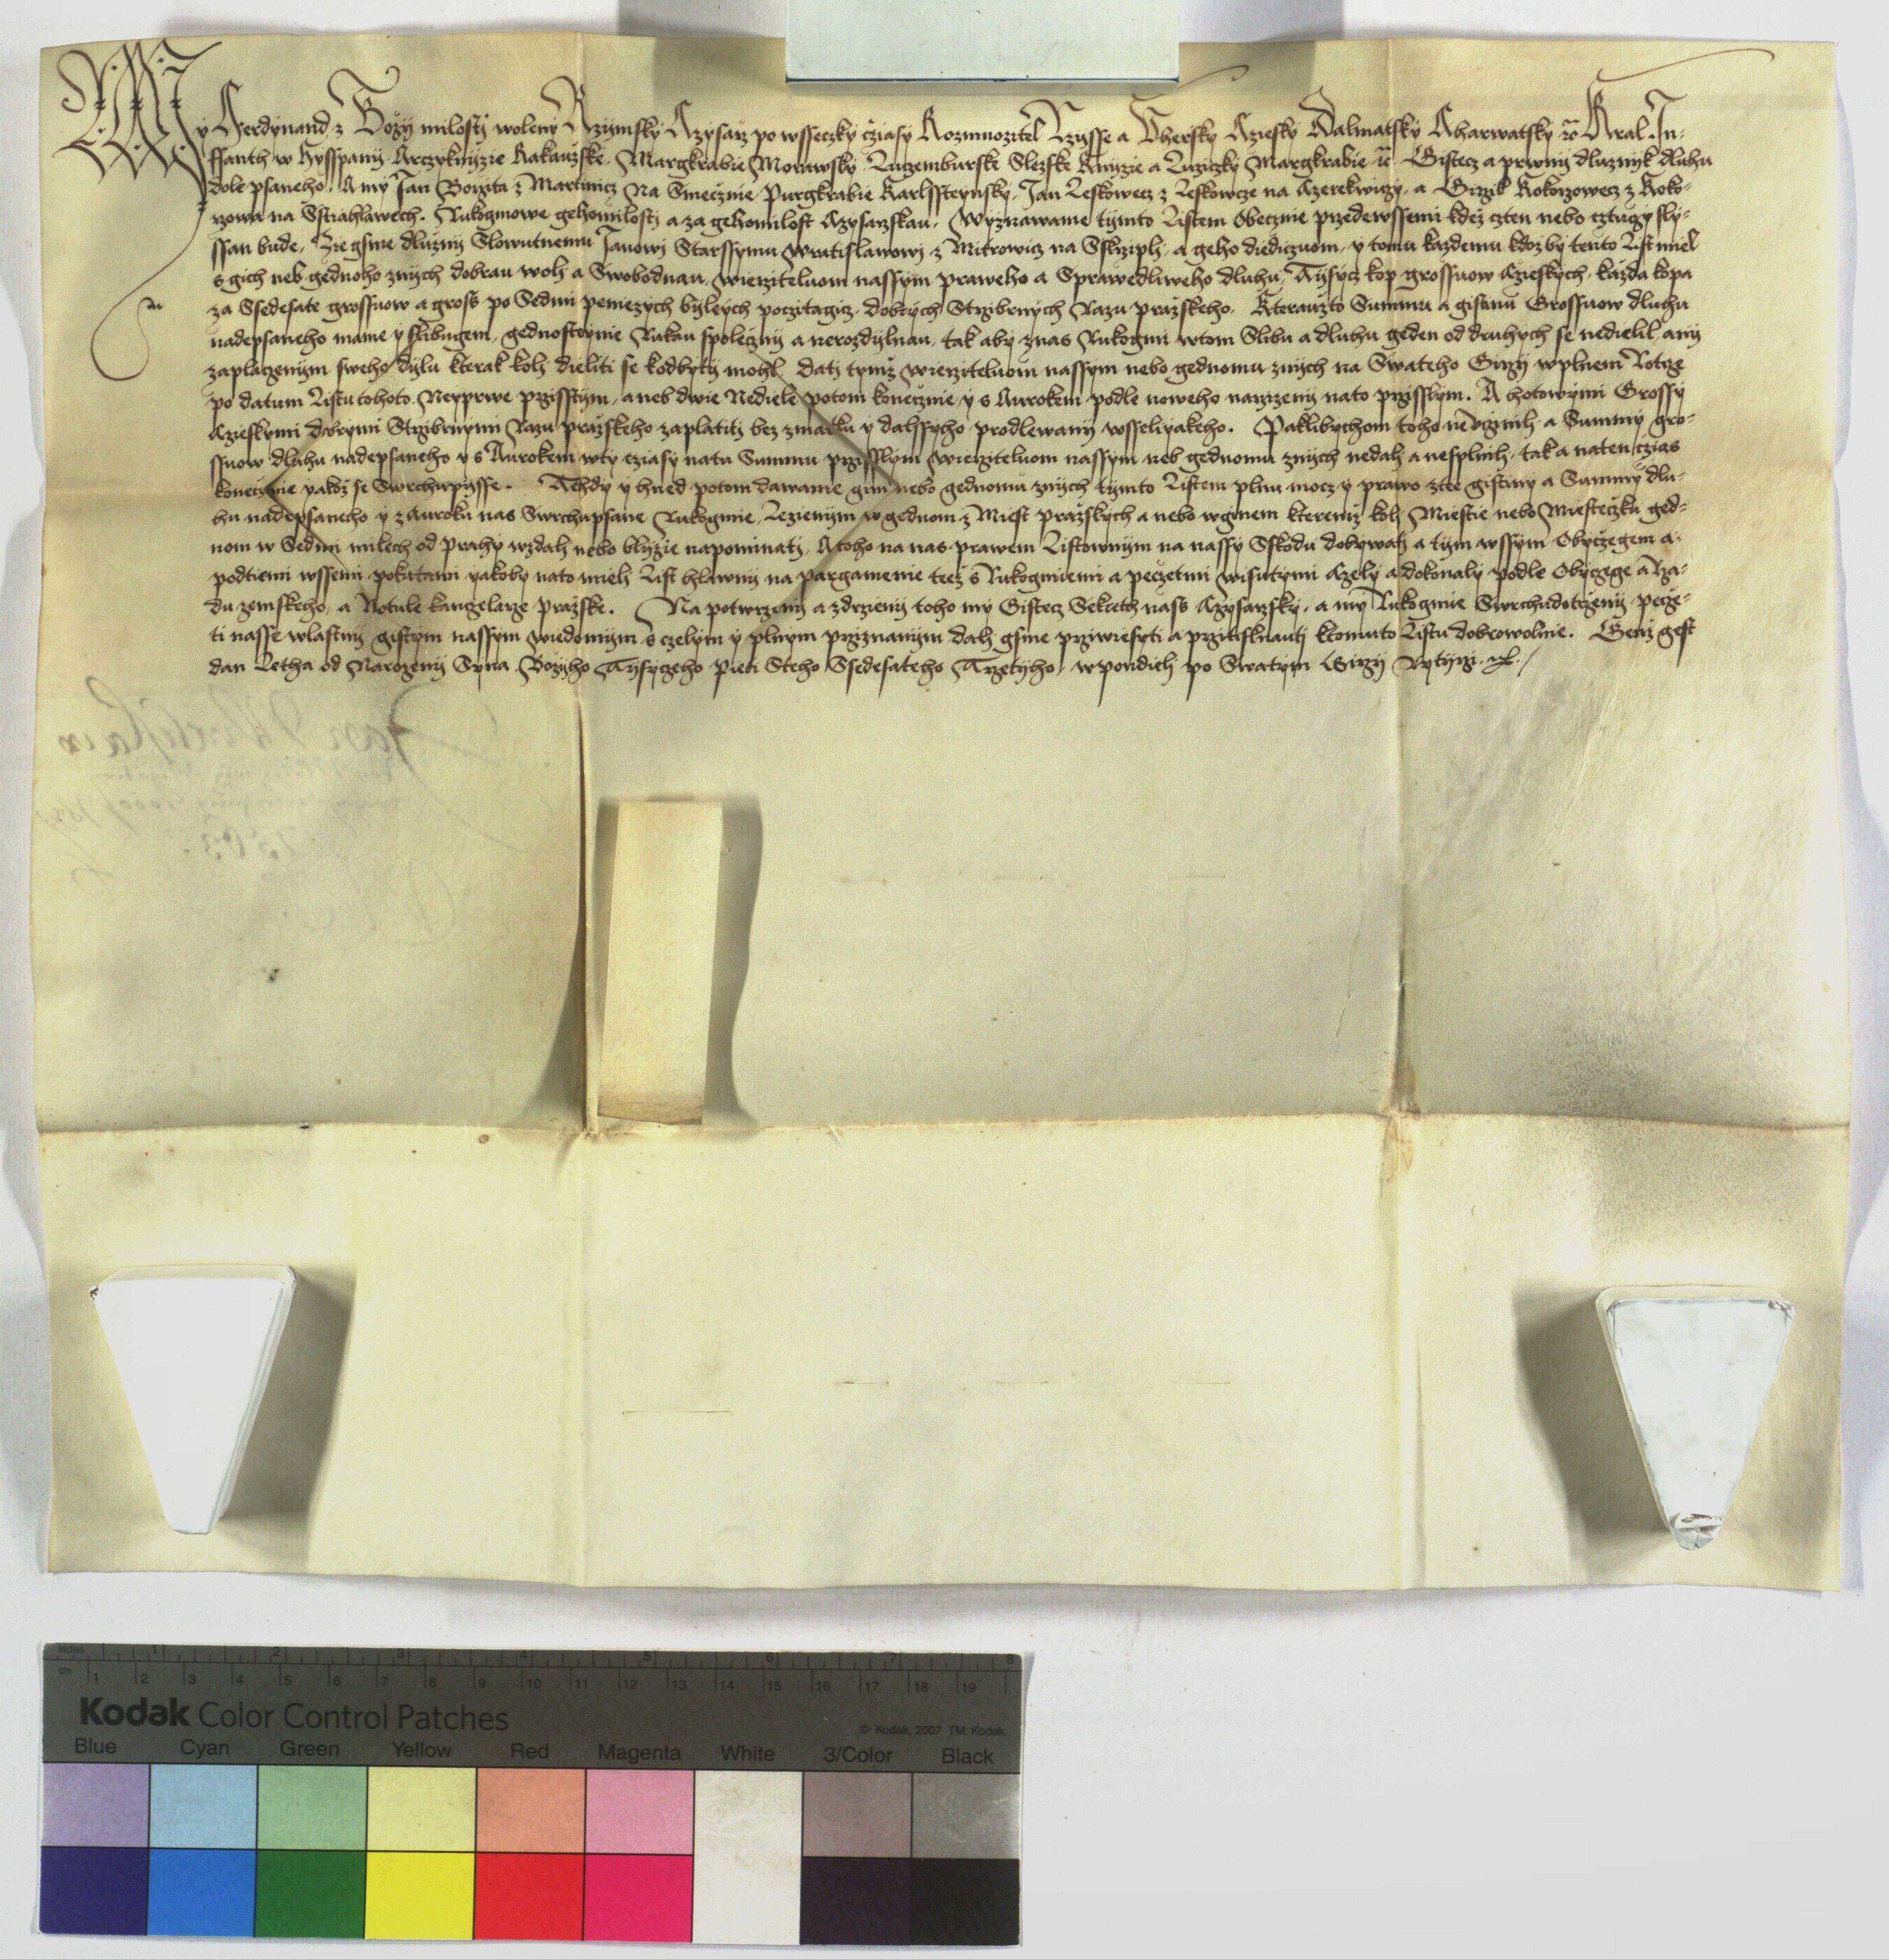 My Ferdynand z Boży milosty woleny Rzymsky Czysarz po wsseczky cziasy Rozmnozitel Rzysse a Vhersky Cziesky Dalmatsky Charwatsky ꝛc Kral In-
ffanth w Hysspany Arczyknyzie Rakauzske Margkrabie Morawsky Luczemburske Slezske Knyzie a Luziczky Margkrabie ꝛc Gistecz a prwny dluznyk dluhu
dole psaneho. A my Jan Borzita z Martinicz Na Smecznie Purgkrabie Karlssteynsky, Jan Leskowecz z Leskowcze na Czerekwiczy, a Girzik Kokorzowecz z Koko-
rzowa na Sstiahlawech. Rukogmowe geho milosti a za geho milost Czysarzskau, Wyznawame tymto Listem Obecznie przedewssemi kdez czten nebo cztuczy sly-
ssan bude, Zie gsme dluzny Slowutnemu Janowi Starssymu Wratislawowi z Mitrowicz na Sskrziply, a geho diediczuom, y tomu kazdemu kdoz by tento List miel
s gich neb gednoho znych dobrau woli a Swobodnau, wierziteluom nassym praweho a Sprawedliweho dluhu, Tysycz kop grossuow Czieskych, kazda kopa
za Ssedesate grossuow a gross po Sedmi peniezych bylych pocztagicz, dobrych Strzibrnych Razu prazskeho. Kterauzto Summu a gistinu Grossuow dluhu
nadepsaneho mame y slibugem, gednosteynie Rukau spoleczny a nerozdylnau, tak aby znas Rukogmi wtom Slibu a dluhu geden od druhych se nedielil any
zaplaczenym sweho dylu kterak koli dieliti se kodbyty mohl Dati tymz wierziteluom nassym nebo gednomu znych na Swateho Girzy wplnem Rotcze
po datum Listu tohoto Neyprwe przisstym, a neb dwie Nediele potom konecznie, y s Aurokem podle noweho narzizeny nato przisslym. A hotowymi Grossy
Czieskymi dobrymi Strzibrnymi Razu prazskeho zaplatiti bez zmatku y dalssyho prodlewany wsseliyakeho. Paklibychom toho neucziнili a Summy gro-
ssuow dluhu nadepsaneho y s Aurokem wty cziasy natu Summu przisslym wierziteluom nassym neb gednomu znych nedali a nesplnili, tak a naten czias
konecznie yakoz se Swrchupysse. Tehdy y hned potom dawame gim nebo gednomu znych tymto Listem plnu mocz y prawo ztee gistiny a Summy dlu-
hu nadepsaneho y z Auroku nas Swrchupsane Rukogmie, Lezienym w gednom z Miest prazskych a nebo wginem kteremz koli Miestie nebo Miesteczku ged-
nom w Sedmi milech od Prahy wzdali nebo blyzie napominati, A toho na nas prawem Listownym na nassy Sskodu dobywati a tym wssym Obyczegem a
podtiemi wssemi pokutami yakoby nato mieli List hlawny na pargamenie teez s Rukogmiemi a peczetmi wisutymi Czely a dokonaly podle Obyczege a Rza-
du zemskeho, a Notule kanczelarze prazske. Na potwrzeny a zdrzieny toho my Gistecz Sekreth nass Czysarzsky, a my Rukogmie Swrchudotczeny pecze-
ti nasse wlastny gistym nassym wiedomym s czelym y plnym przyznanym dali gsme prziwiesyti a przitisknauti ktomuto Listu dobrowolnie. Genz gest
dan Letha od Narozeny Syna Bozyho Tysyczeho Pieti Steho Ssedesateho Trzetyho, w pondieli po Swatym Girzy Rytyrzi.
Kodak Color Control Patches
© Kodak, 2007 TM: Kodak
inches 1 2 3 4 5 6 7 8
cm 1 2 3 4 5 6 7 8 9 10 11 12 13 14 15 16 17 18 19
Blue Cyan Green Yellow Red Magenta White 3/Color Black